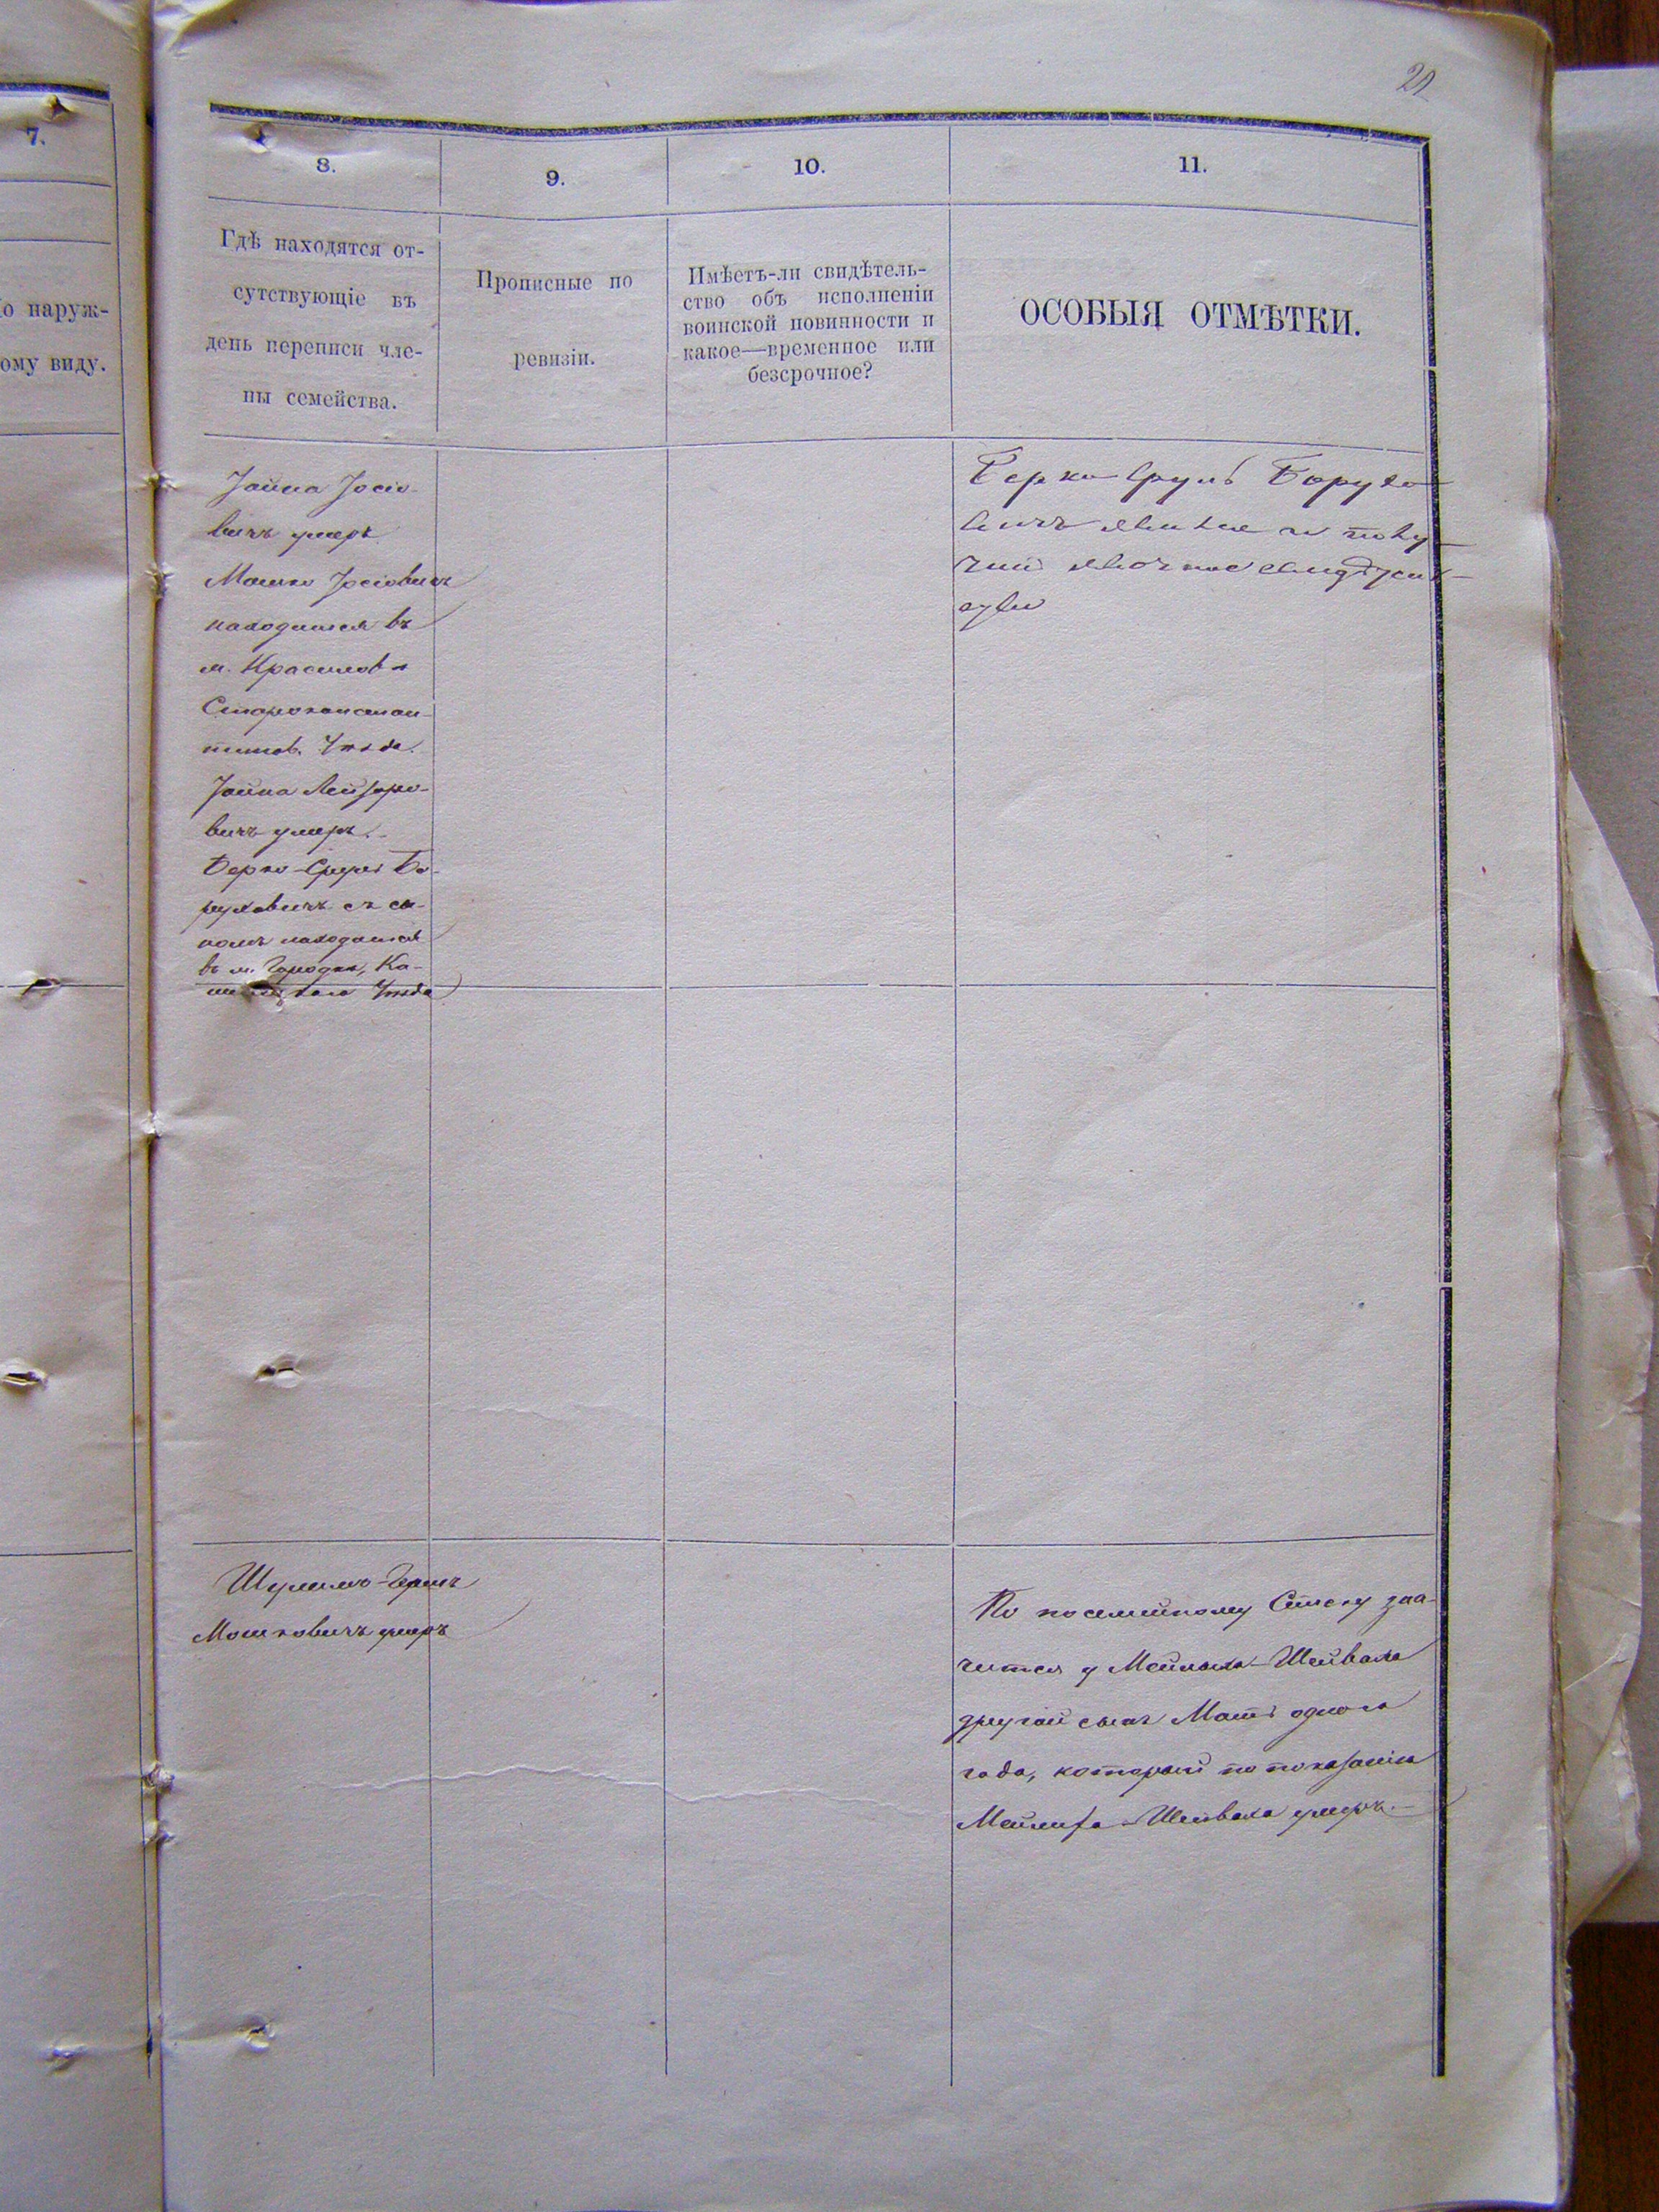 21
7.
о наруж-
ому виду.
8.
9.
10.
11.
Гдѣ находятся от-
сутствующіе въ
день переписи чле-
ны семейства.
Прописные по
ревизіи.
Имѣетъ-ли свидѣтель-
ство объ исполненіи
воинской повинности и
какое—временное или
безсрочное?
ОСОБЫЯ ОТМѢТКИ.
Іойна Іосіо-
вичъ умеръ
Мошко Іосіовичъ
находится въ
м. Красиловѣ
Староконстан-
тинов. Уѣзда.
Іойна Лейзоро-
вичъ умеръ.
Берко-Сруль Бо-
руховичъ съ сы-
номъ находится
въ м. Городкѣ, Ка-
Уѣзда
Берко Сруль Борухо-
вичъ явился и полу-
чил явочное
Шулимъ-Гершъ
Мошковичъ умеръ
По посемейному Списку зна-
чится у Мейлыха-Шейваха
другой сынъ Мотъ одного
года, который по показанію
Шейваха умеръ.—